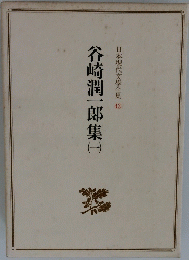 日本現代文學全集 43
谷崎潤一郎集(一)